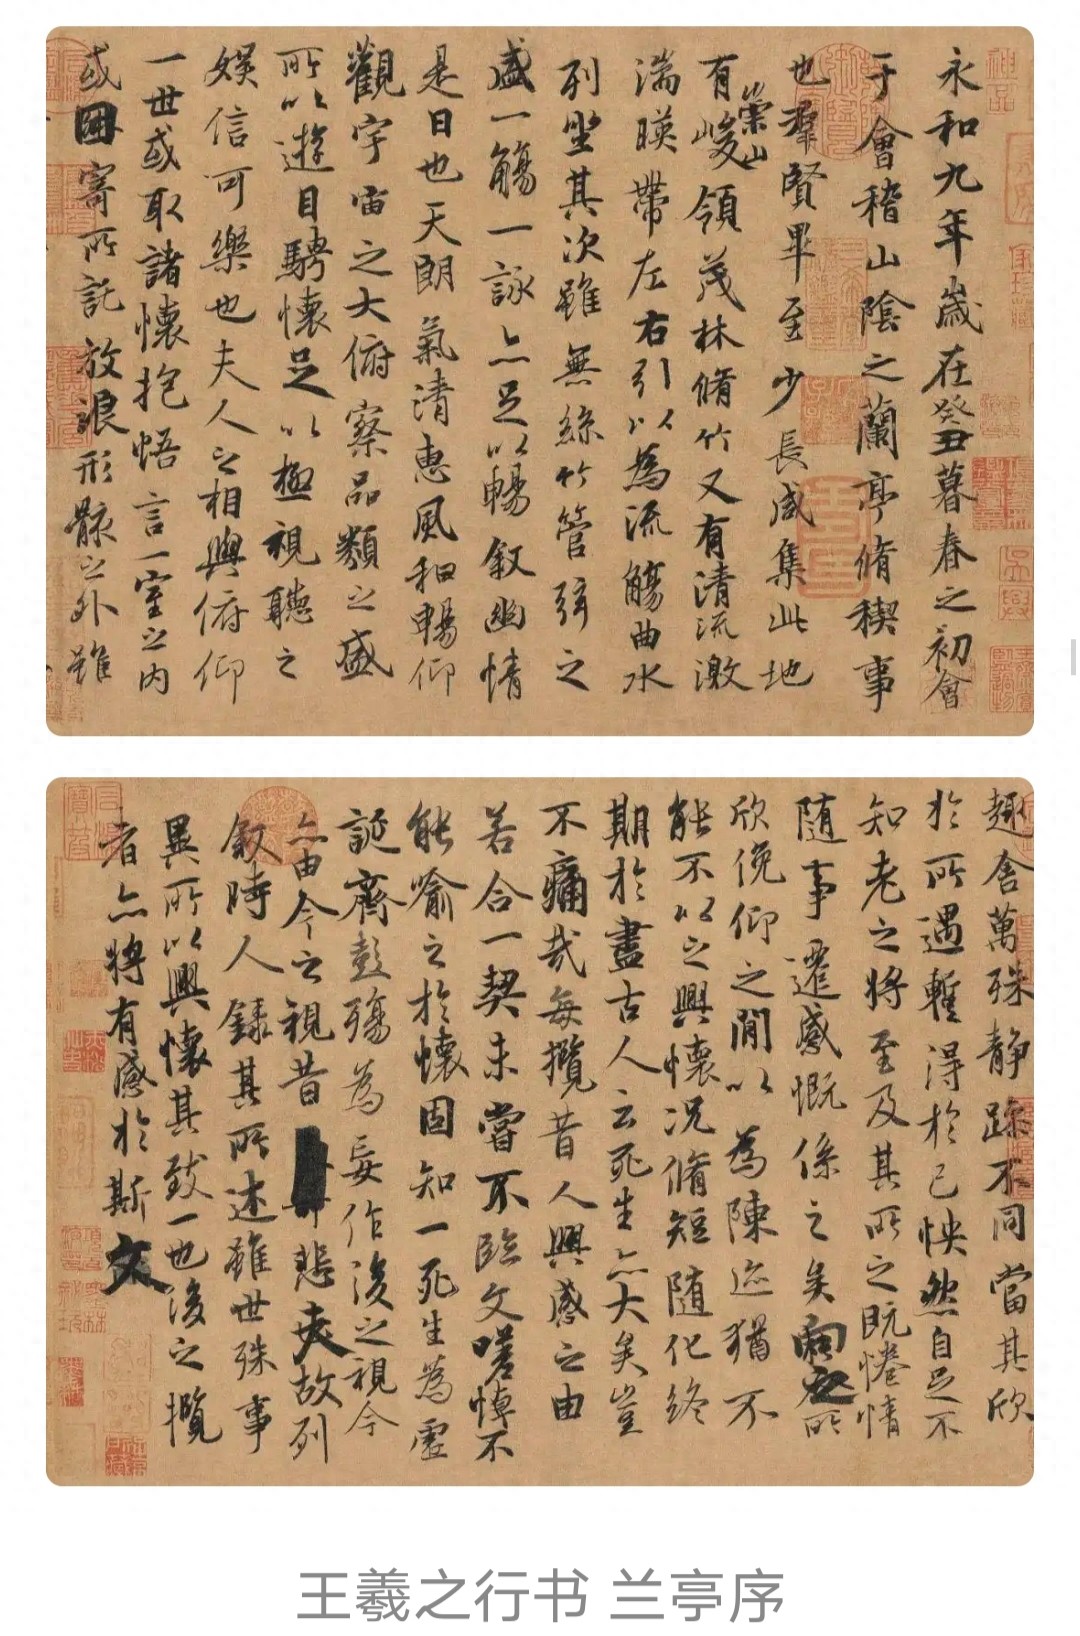 永和九年歲在癸丑暮春之初會
于會稽山陰之蘭亭脩稧事
也羣賢畢至少長咸集此地
有崇山峻領茂林脩竹又有清流激
湍暎帶左右引以為流觴曲水
列坐其次雖無絲竹管弦之
盛一觴一詠亦足以暢叙幽情
是日也天朗氣清惠風和暢仰
觀宇宙之大俯察品類之盛
所以遊目騁懷足以極視聽之
娛信可樂也夫人之相與俯仰
一世或取諸懷抱悟言一室之內
或因寄所託放浪形骸之外雖
趣舍萬殊靜躁不同當其欣
於所遇蹔得於己怏然自足不
知老之將至及其所之既惓情
隨事遷感慨係之矣向之所
欣俛仰之閒以為陳迹猶不
能不以之興懷況脩短隨化終
期於盡古人云死生亦大矣豈
不痛哉每攬昔人興感之由
若合一契未嘗不臨文嗟悼不
能喻之於懷固知一死生為虛
誕齊彭殤為妄作後之視今
亦由今之視昔悲夫故列
叙時人錄其所述雖世殊事
異所以興懷其致一也後之攬
者亦將有感於斯文
王羲之行书 兰亭序